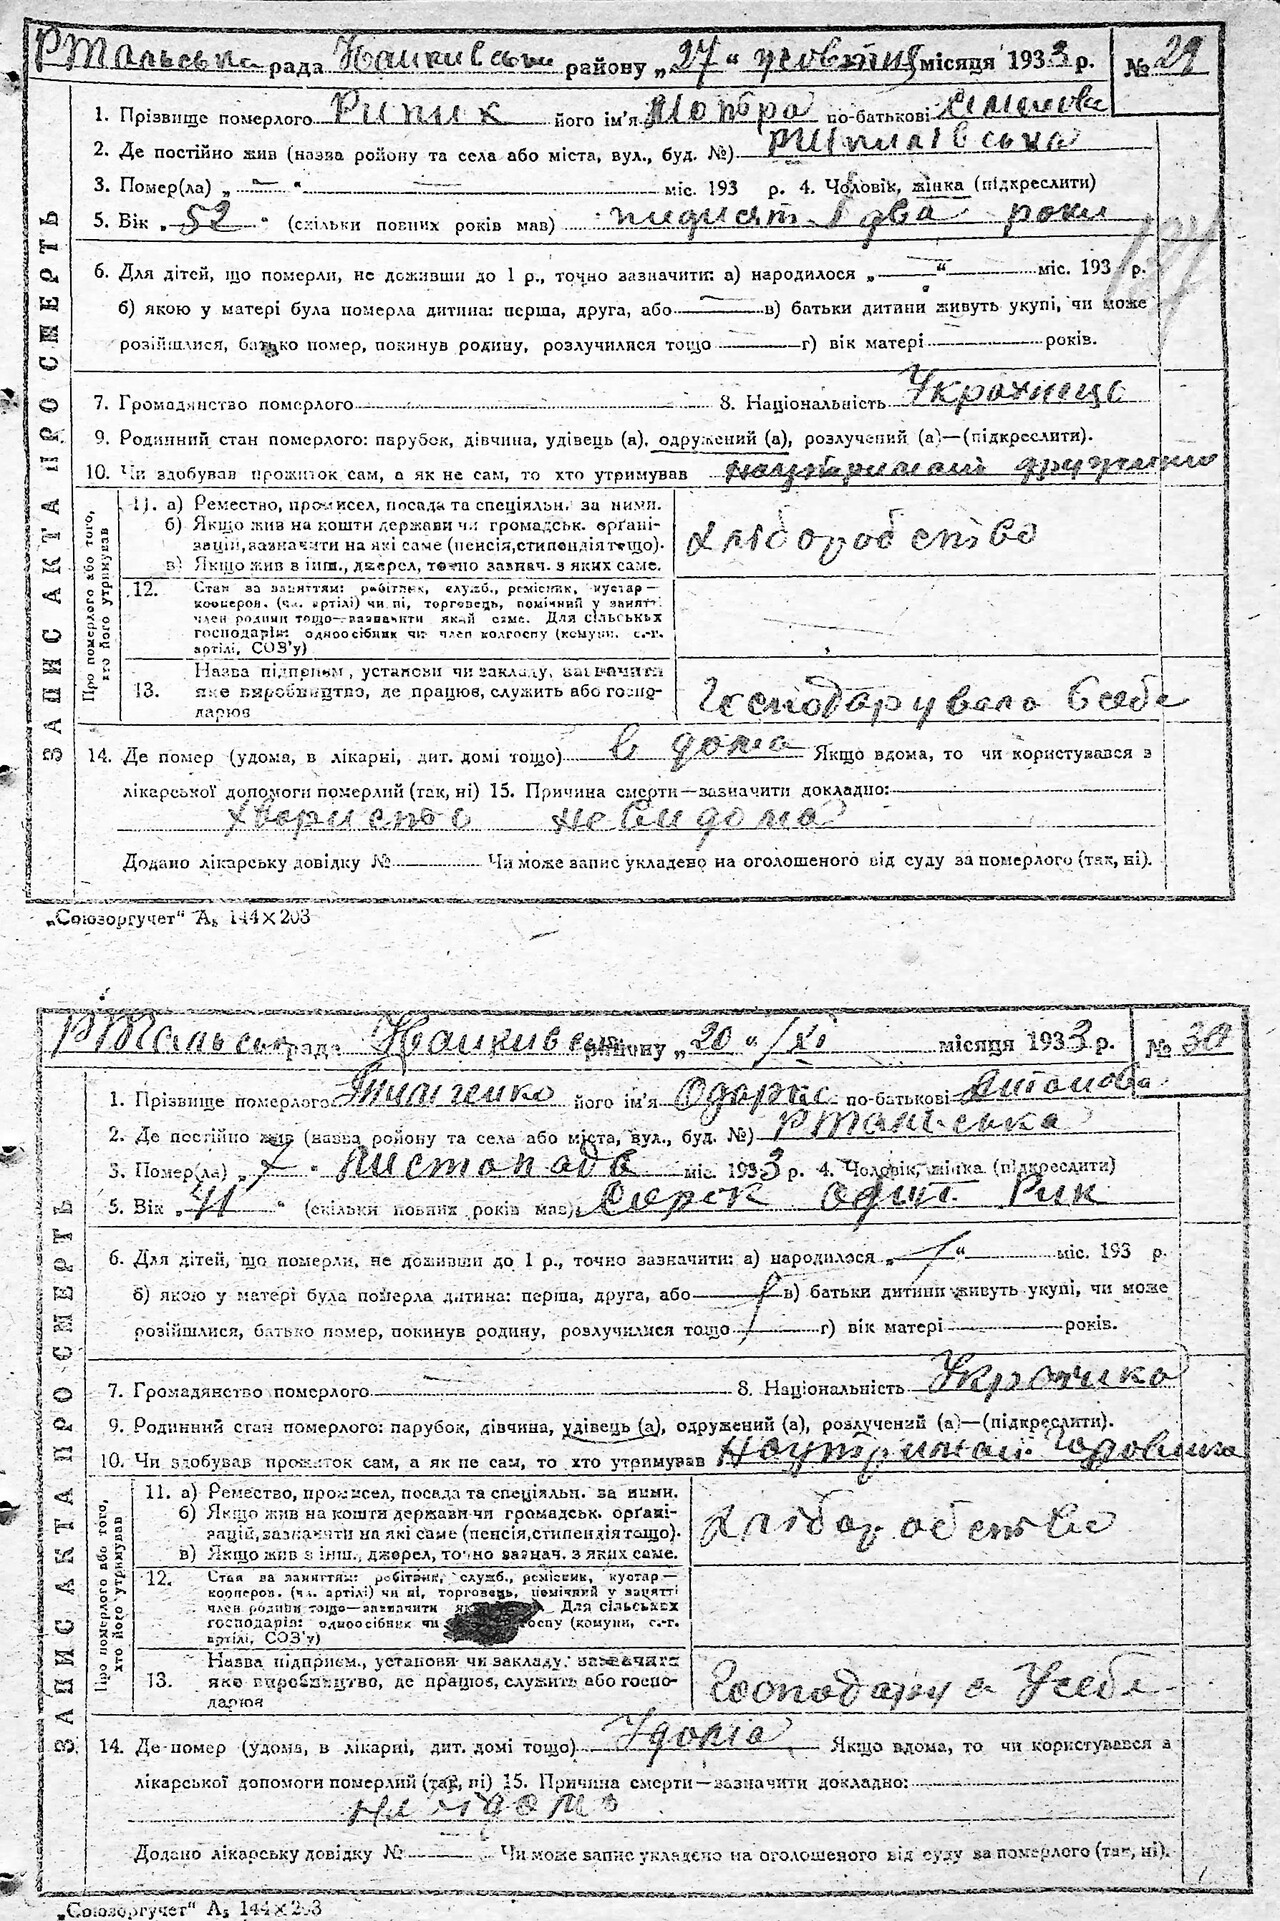 РТальська рада району „27“ жовтня місяця 1933 р. № 29
1. Прізвище померлого Рипик його ім'я Мотра по-батькові
2. Де постійно жив (назва району та села або міста, вул., буд. №)
3. Помер(ла) „ — “ — міс. 193 р. 4. Чоловік, жінка (підкреслити)
5. Вік „52“ (скільки повних років мав) пидисят два роки
6. Для дітей, що померли, не доживши до 1 р., точно зазначити: а) народилося „—“ міс. 193 р.
б) якою у матері була померла дитина: перша, друга, або — в) батьки дитини живуть укупі, чи може
розійшлися, батько помер, покинув родину, розлучилися тощо — г) вік матері — років.
7. Громадянство померлого 8. Національність Украинець
9. Родинний стан померлого: парубок, дівчина, удівець (а), одружений (а), розлучений (а)—(підкреслити).
10. Чи здобував прожиток сам, а як не сам, то хто утримував
ЗАПИС АКТА ПРО СМЕРТЬ
Про померлого або того, хто його утримував
11. а) Ремество, промисел, посада та спеціяльн. за ними.
б) Якщо жив на кошти держави чи громадськ. органі-
зацій, зазначити на які саме (пенсія, стипендія тощо).
в) Якщо жив з інш., джерел, точно зазнач. з яких саме.
хліборобство
12. Стан за заняттям: робітник, служб., ремісник, кустар—
кооперов. (чл. артілі) чи ні, торговець, помічний у занятті
член родини тощо—зазначити який саме. Для сільськьх
господарів: одноосібник чи член колгоспу (комуни, с.-г.
артілі, СОЗ'у)
13. Назва підприєм., установи чи закладу, зазначити
яке виробництво, де працює, служить або госпо-
дарює
Господарувала в себе
14. Де помер (удома, в лікарні, дит. домі тощо) в дома Якщо вдома, то чи користувався з
лікарської допомоги померлий (так, ні) 15. Причина смерти—зазначити докладно:
невидома
Додано лікарську довідку № Чи може запис укладено на оголошеного від суду за померлого (так, ні).
„Союзоргучет“ А₅ 144×203
РТальська рада району „20“ /XI місяця 1933 р. № 30
1. Прізвище померлого Тимченко його ім'я Одарка по-батькові Антонова
2. Де постійно жив (назва району та села або міста, вул., буд. №) РТальська
3. Помер(ла) „7. Листопада міс. 1933 р. 4. Чоловік, жінка (підкреслити)
5. Вік „41“ (скільки повних років мав) Сорок один Рик
6. Для дітей, що померли, не доживши до 1 р., точно зазначити: а) народилося „—“ міс. 193 р.
б) якою у матері була померла дитина: перша, друга, або — в) батьки дитини живуть укупі, чи може
розійшлися, батько помер, покинув родину, розлучилися тощо — г) вік матері — років.
7. Громадянство померлого 8. Національність Украинка
9. Родинний стан померлого: парубок, дівчина, удівець (а), одружений (а), розлучений (а)—(підкреслити).
10. Чи здобував прожиток сам, а як не сам, то хто утримував
ЗАПИС АКТА ПРО СМЕРТЬ
Про померлого або того, хто його утримував
11. а) Ремество, промисел, посада та спеціяльн. за ними.
б) Якщо жив на кошти держави чи громадськ. органі-
зацій, зазначити на які саме (пенсія, стипендія тощо).
в) Якщо жив з інш., джерел, точно зазнач. з яких саме.
хліборобство
12. Стан за заняттям: робітник, служб., ремісник, кустар—
кооперов. (чл. артілі) чи ні, торговець, помічний у занятті
член родини тощо—зазначити Для сільських
господарів: одноосібник чи (комуни, с.-г.
артілі, СОЗ'у)
13. Назва підприєм., установи чи закладу, зазначити
яке виробництво, де працює, служить або госпо-
дарює
Господарує Усебе
14. Де помер (удома, в лікарні, дит. домі тощо) Удома Якщо вдома, то чи користувався з
лікарської допомоги померлий (так, ні) 15. Причина смерти—зазначити докладно:
Додано лікарську довідку № Чи може запис укладено на оголошеного від суду за померлого (так, ні).
„Союзоргучет“ А₅ 144×203